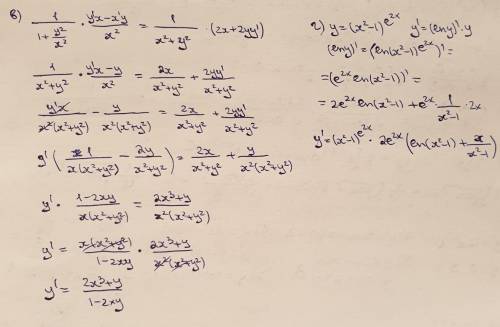 в) 1/(1+y²/x²) · (y'x-x'y)/x² = 1/(x²+y²) · (2x+2yy')
1/(x²+y²) · (y'x-y)/x² = 2x/(x²+y²) + 2yy'/(x²+y²)
y'x/(x²(x²+y²)) - y/(x²(x²+y²)) = 2x/(x²+y²) + 2yy'/(x²+y²)
y'(1/(x(x²+y²)) - 2y/(x²+y²)) = 2x/(x²+y²) + y/(x²(x²+y²))
y' · (1-2xy)/(x(x²+y²)) = (2x³+y)/(x²(x²+y²))
y' = x(x²+y²)/(1-2xy) · (2x³+y)/(x²(x²+y²))
y' = (2x³+y)/(1-2xy)
г) y=(x²-1)^(e^(2x)) y'=(lny)'·y
(lny)'=(ln(x²-1)^(e^(2x)))'=
=(e^(2x) ln(x²-1))'=
=2e^(2x) ln(x²-1)+e^(2x)·1/(x²-1)·2x
y'=(x²-1)^(e^(2x)) · 2e^(2x)(ln(x²-1)+x/(x²-1))